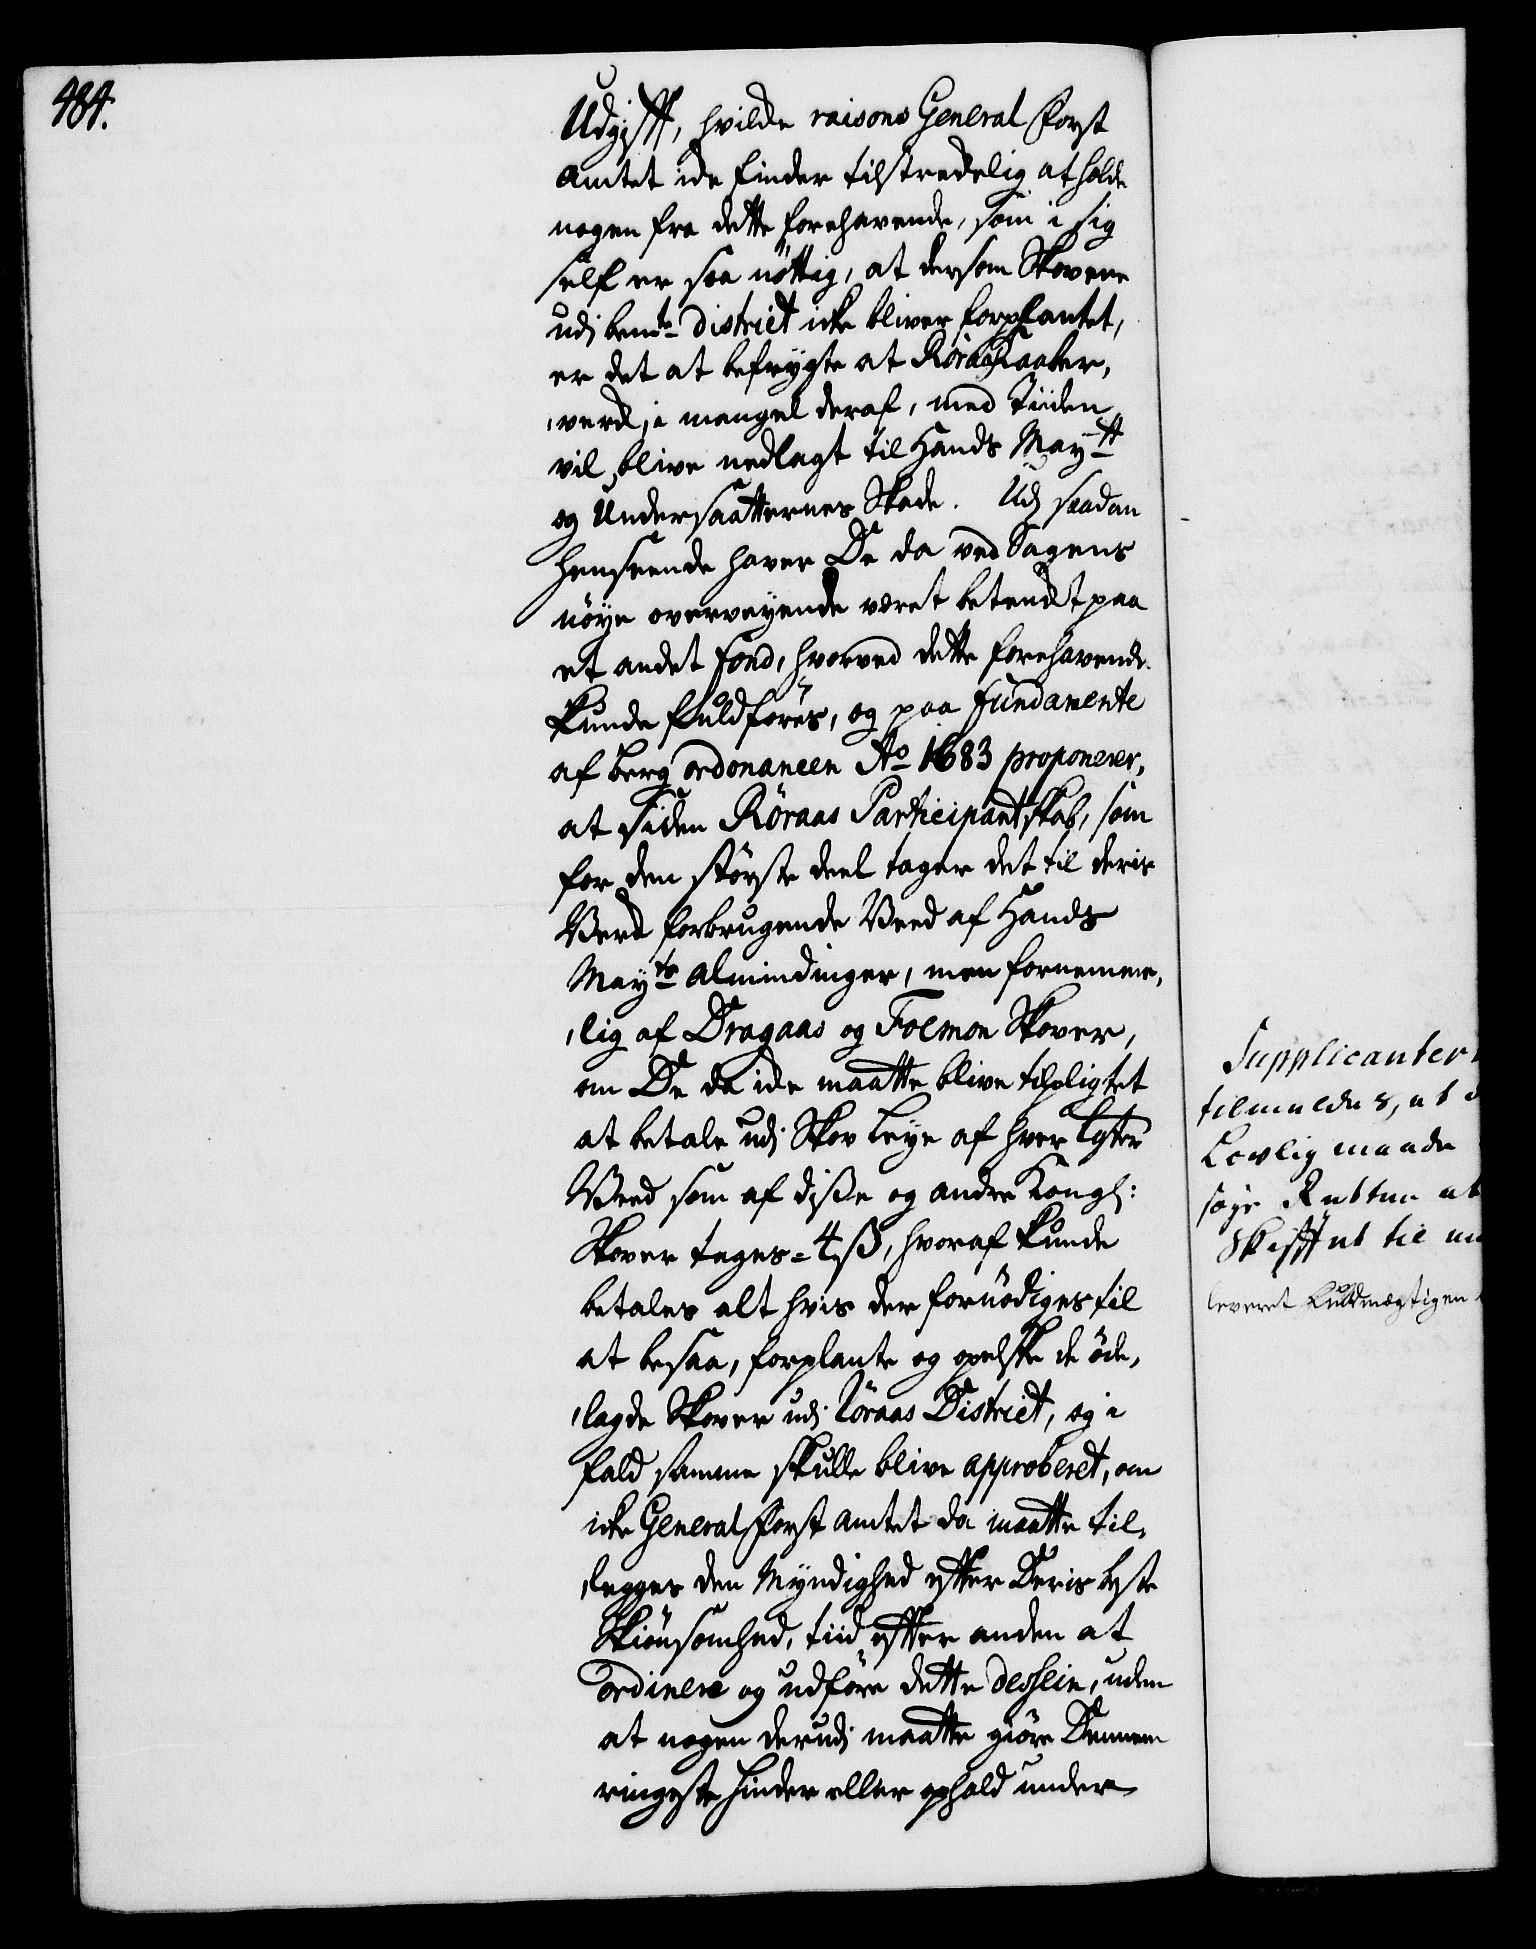 484.
Udgifft, hvilcke raisons General Forst
Amtet icke finder tilstreckelig at holde
nogen fra dette forehavende, som i sig
self er saa nöttig, at dersom Skovene
udj bemte district icke bliver forplantet,
er det at befrygte at Röraas Kaaber,
,verck, i mangel deraf, med Tiiden
vil blive nedlagt til Hands Maytt
og Undersaatternes Skade. Udj saadan
henseende haver De da ved Sagens
nöye overveyende været betenckt paa
et andet Fond, hvorved dette forehavende
kunde fuldföres, og paa Fundamente
af Berg ordonancen Ao 1683 proponerer,
at siden Röraas Participantskab, som
for den störste deel tager det til deris
Verck forbrugende Veed af Hands
Mayts Almindinger, men fornemme,
,lig af Dragaas og Foemon Skover,
om De da icke maatte blive tilpligtet
at betale udj Skov Leye af hver Lgter
Veed som af disse og andre Kongl:
Skover tages = 4 ß, hvoraf kunde
betales alt hvis der fornödiges til
at besaa, forplante og opelske de öde,
,lagde Skover udj Röraas District, og i
fald samme skulle blive approberet, om
icke General Forst Amtet da maatte til,
,legges den Myndighed efter Deris beste
Skiönsomhed, tiid efter anden at
ordinere og udföre dette dessein, uden
at nogen derudj maatte giöre Dennem
ringeste hinder eller ophold under
Supplicanter
tilmeldes, at
Lovlig maade
söge Retten
Skifftet til
leveret Fuldmægtigen